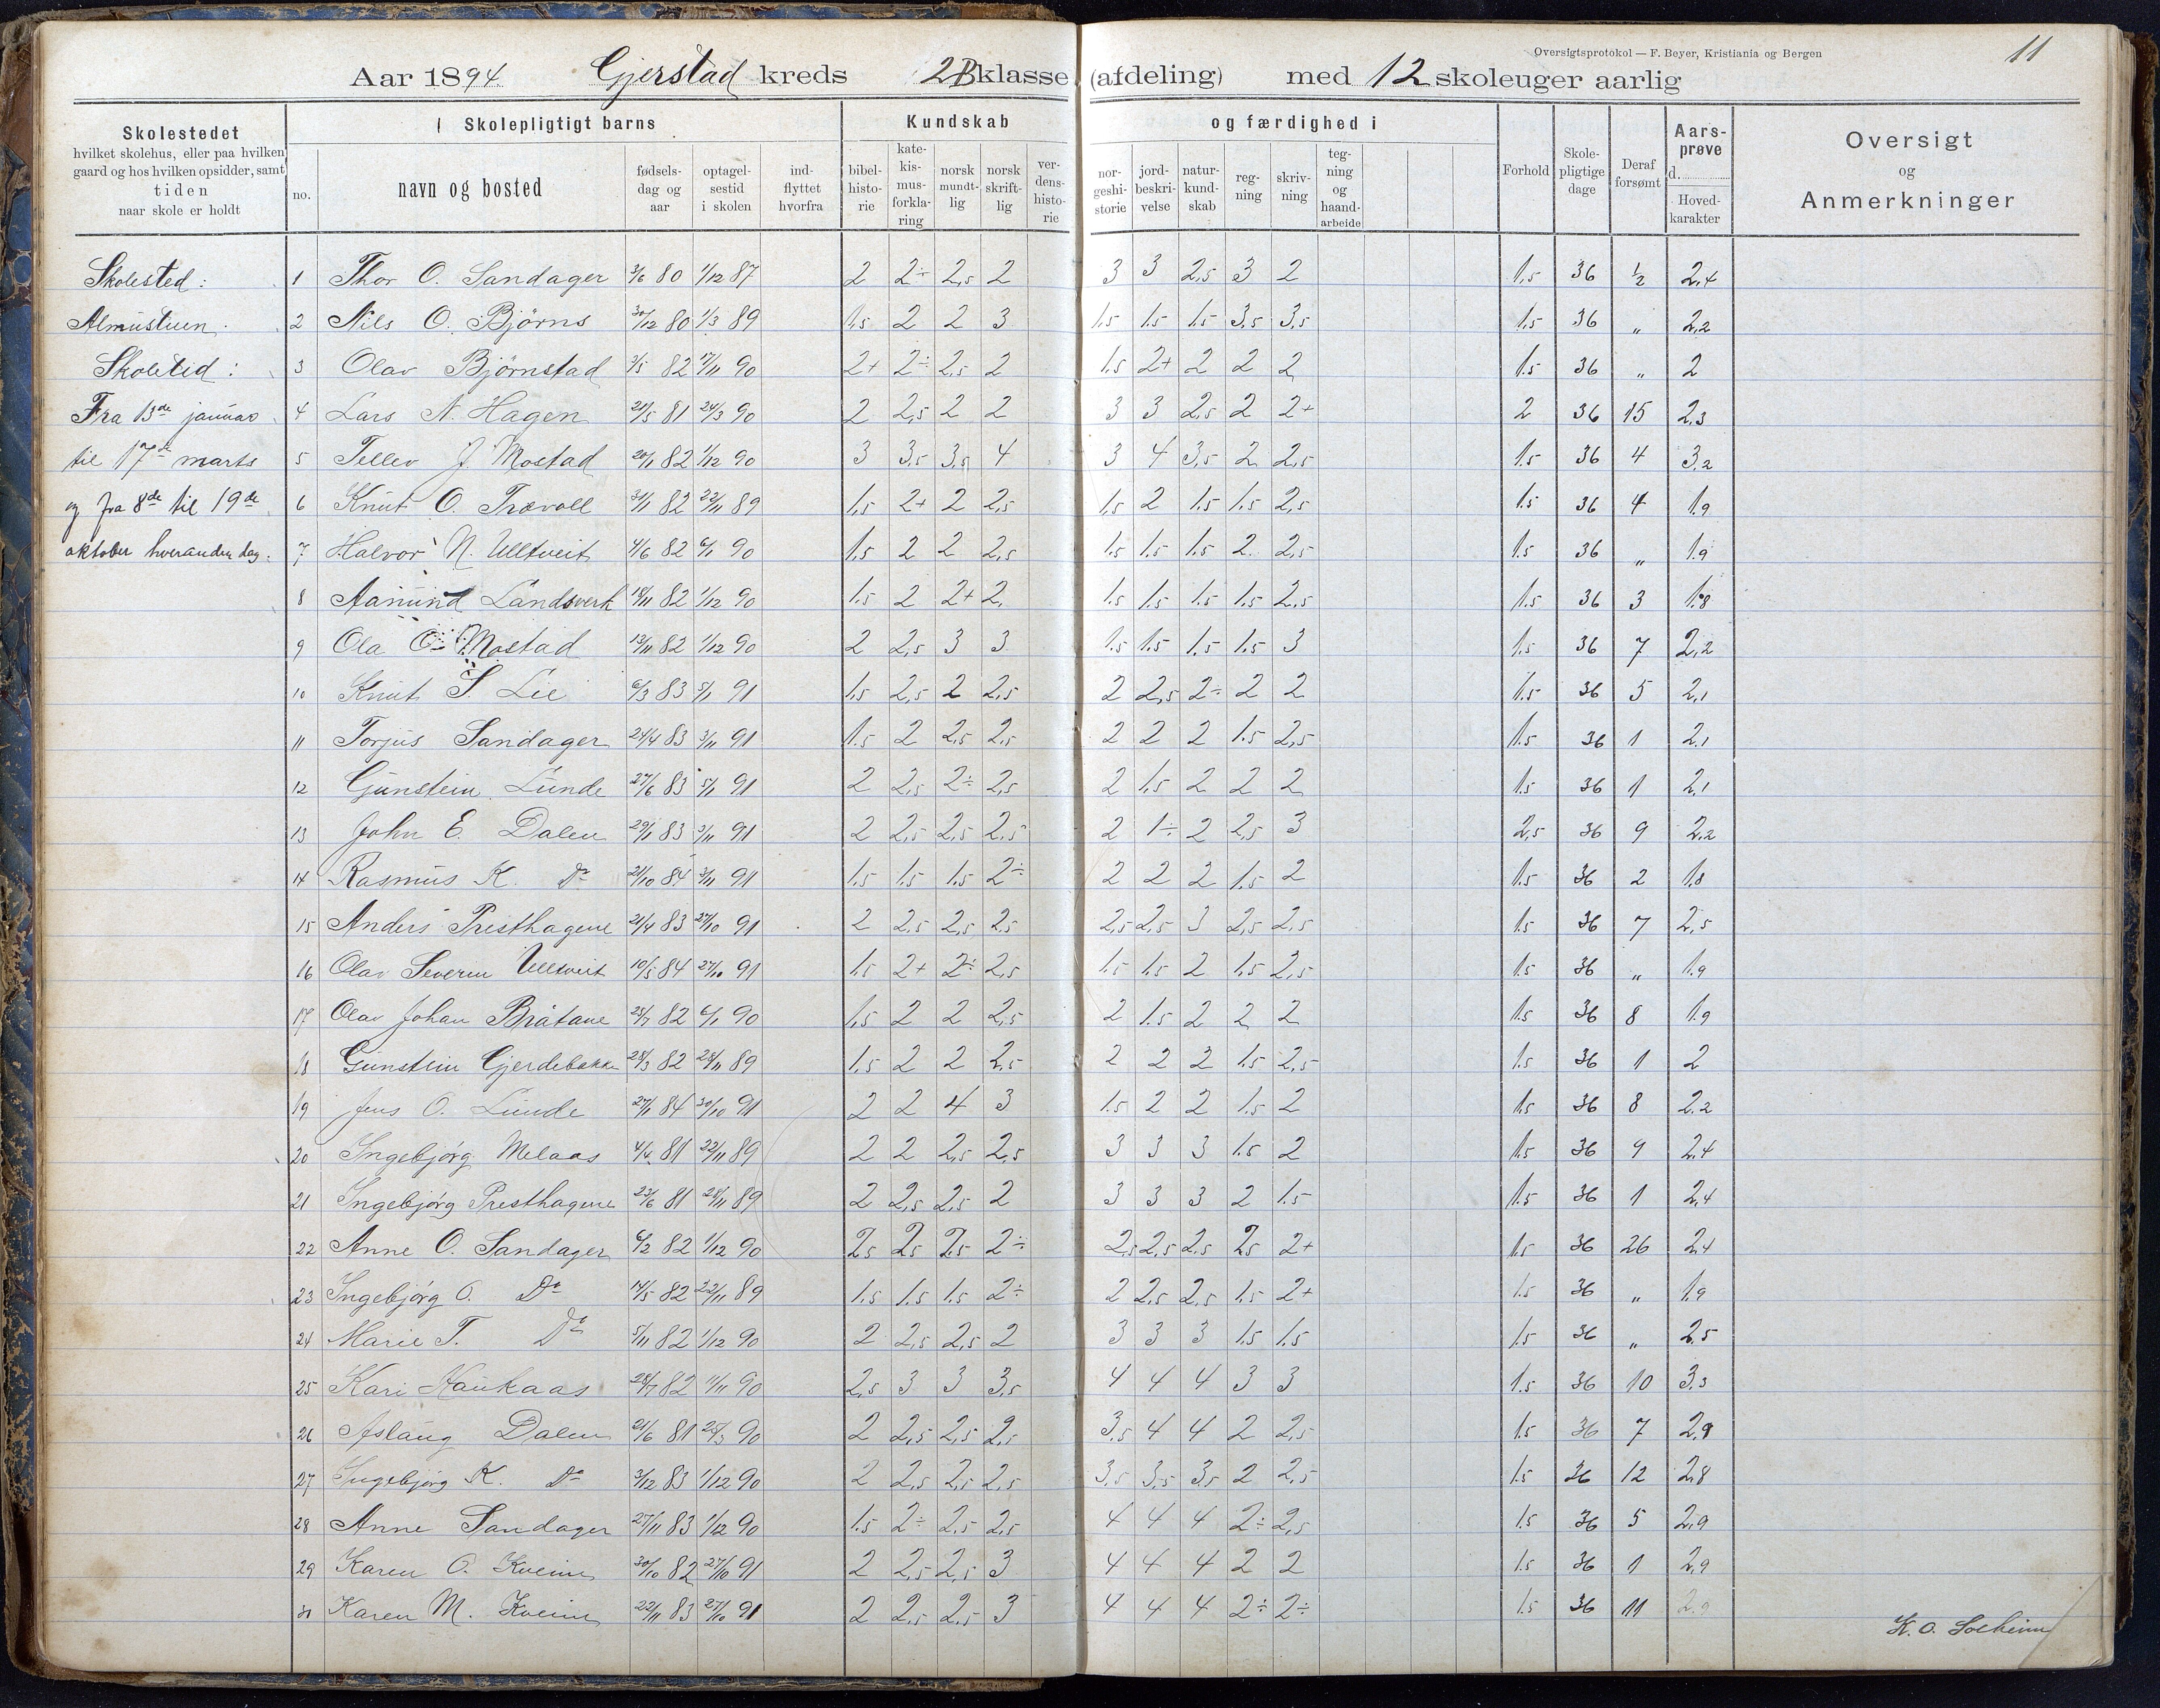 Oversigtsprotokol — F. Beyer, Kristiania og Bergen
11
Aar 1894. Gjerstad kreds 2B klasse (afdeling) med 12 skoleuger aarlig
Skolestedet
hvilket skolehus, eller paa hvilken
gaard og hos hvilken opsidder, samt
tiden
naar skole er holdt
Skolepligtigt barns
no.
navn og bosted
fødsels-dag og aar
optagel-sestid i skolen
ind-flyttet hvorfra
Kundskab og færdighed i
bibel-histo-rie
kate-kis-mus-forkla-ring
norsk mundt-lig
norsk skrift-lig
ver-dens-histo-rie
nor-geshi-storie
jord-beskri-velse
natur-kund-skab
reg-ning
skriv-ning
teg-ning og haand-arbeide
Forhold
Skole-pligtige dage
Deraf forsømt
Aars-prøve d.
Hoved-karakter
Oversigt
og
Anmerkninger
Skolested:
Almustuen.
Skoletid:
Fra 13de januar
til 17de marts
og fra 8de til 19de
oktober hveranden dag.
1 Thor O. Sandager 3/6 80 1/12 87 2 2÷ 2,5 2 3 3 2,5 3 2 1,5 36 1/2 2,4
2 Nils O. Bjørns 30/12 80 1/3 89 1,5 2 2 3 1,5 1,5 1,5 3,5 3,5 1,5 36 " 2,2
3 Olav Bjørnstad 3/5 82 17/11 90 2+ 2÷ 2,5 2 1,5 2+ 2 2 2 1,5 36 " 2
4 Lars N. Hagen 21/5 81 24/3 90 2 2,5 2 2 3 3 2,5 2 2+ 2 36 15 2,3
5 Tellev J. Mostad 20/1 82 1/12 90 3 3,5 3,5 4 3 4 3,5 2 2,5 1,5 36 4 3,2
6 Knut O. Trævoll 31/1 82 22/11 89 1,5 2+ 2 2,5 1,5 2 1,5 1,5 2,5 1,5 36 4 1,9
7 Halvor N. Ulltveit 4/6 82 6/1 90 1,5 2 2 2,5 1,5 1,5 1,5 2 2,5 1,5 36 " 1,9
8 Aamund Landsverk 18/11 82 1/12 90 1,5 2 2+ 2 1,5 1,5 1,5 1,5 2,5 1,5 36 3 1,8
9 Ola O. Mostad 13/11 82 1/12 90 2 2,5 3 3 1,5 1,5 1,5 1,5 3 1,5 36 7 2,2
10 Knut S Lie 6/3 83 5/1 91 1,5 2,5 2 2,5 2 2,5 2÷ 2 2 1,5 36 5 2,1
11 Torjus Sandager 24/4 83 3/11 91 1,5 2 2,5 2,5 2 2 2 1,5 2,5 1,5 36 1 2,1
12 Gunstein Lunde 27/6 83 5/1 91 2 2,5 2÷ 2,5 2 1,5 2 2 2 1,5 36 1 2,1
13 John E. Dalen 29/1 83 3/11 91 2 2,5 2,5 2,5 2 1÷ 2 2,5 3 2,5 36 9 2,2
14 Rasmus K. Do 21/10 84 3/11 91 1,5 1,5 1,5 2÷ 2 2 2 1,5 2 1,5 36 2 1,8
15 Anders Presthagene 21/4 83 27/10 91 2 2,5 2,5 2,5 2,5 2,5 3 2,5 2,5 1,5 36 7 2,5
16 Olav Severin Ulltveit 10/5 84 27/10 91 1,5 2+ 2÷ 2,5 1,5 1,5 2 1,5 2,5 1,5 36 " 1,9
17 Olav Johan Bråtane 25/7 82 6/1 90 1,5 2 2 2,5 2 1,5 2 2 2 1,5 36 8 1,9
18 Gunstein Gjerdebakke 28/3 82 28/11 89 1,5 2 2 2,5 2 2 2 1,5 2,5 1,5 36 1 2
19 Jens O. Lunde 27/1 84 30/10 91 2 2 4 3 1,5 2 2 1,5 2 1,5 36 8 2,2
20 Ingebjørg Melaas 4/4 81 22/11 89 2 2 2,5 2,5 3 3 3 1,5 2 1,5 36 9 2,4
21 Ingebjørg Presthagene 23/6 81 28/11 89 2 2,5 2,5 2 3 3 3 2 1,5 1,5 36 1 2,4
22 Anne O. Sandager 6/2 82 1/12 90 2,5 2,5 2,5 2÷ 2,5 2,5 2,5 2,5 2+ 1,5 36 26 2,4
23 Ingebjørg O. Do 14/5 82 22/11 89 1,5 1,5 1,5 2÷ 2 2,5 2,5 1,5 2+ 1,5 36 " 1,9
24 Marie T. Do 5/11 82 1/12 90 2 2,5 2,5 2 3 3 3 1,5 1,5 1,5 36 " 2,5
25 Kari Haukaas 28/7 82 11/11 90 2,5 3 3 3,5 4 4 4 3 3 1,5 36 10 3,3
26 Aslaug Dalen 21/6 81 25/3 90 2 2,5 2,5 2,5 3,5 4 4 2 2,5 1,5 36 7 2,9
27 Ingebjørg K. Do 3/12 83 1/12 90 2 2,5 2,5 2,5 3,5 3,5 3,5 2 2,5 1,5 36 12 2,8
28 Anne Sandager 27/11 83 1/12 90 1,5 2÷ 2,5 2,5 4 4 4 2÷ 2,5 1,5 36 5 2,9
29 Karen O. Kveim 30/10 82 27/10 91 2 2,5 2,5 3 4 4 4 2 2 1,5 36 1 2,9
30 Karen M. Kveim 22/11 83 27/10 91 2 2,5 2,5 3 4 4 4 2÷ 2÷ 1,5 36 11 2,9
K. O. Solheim